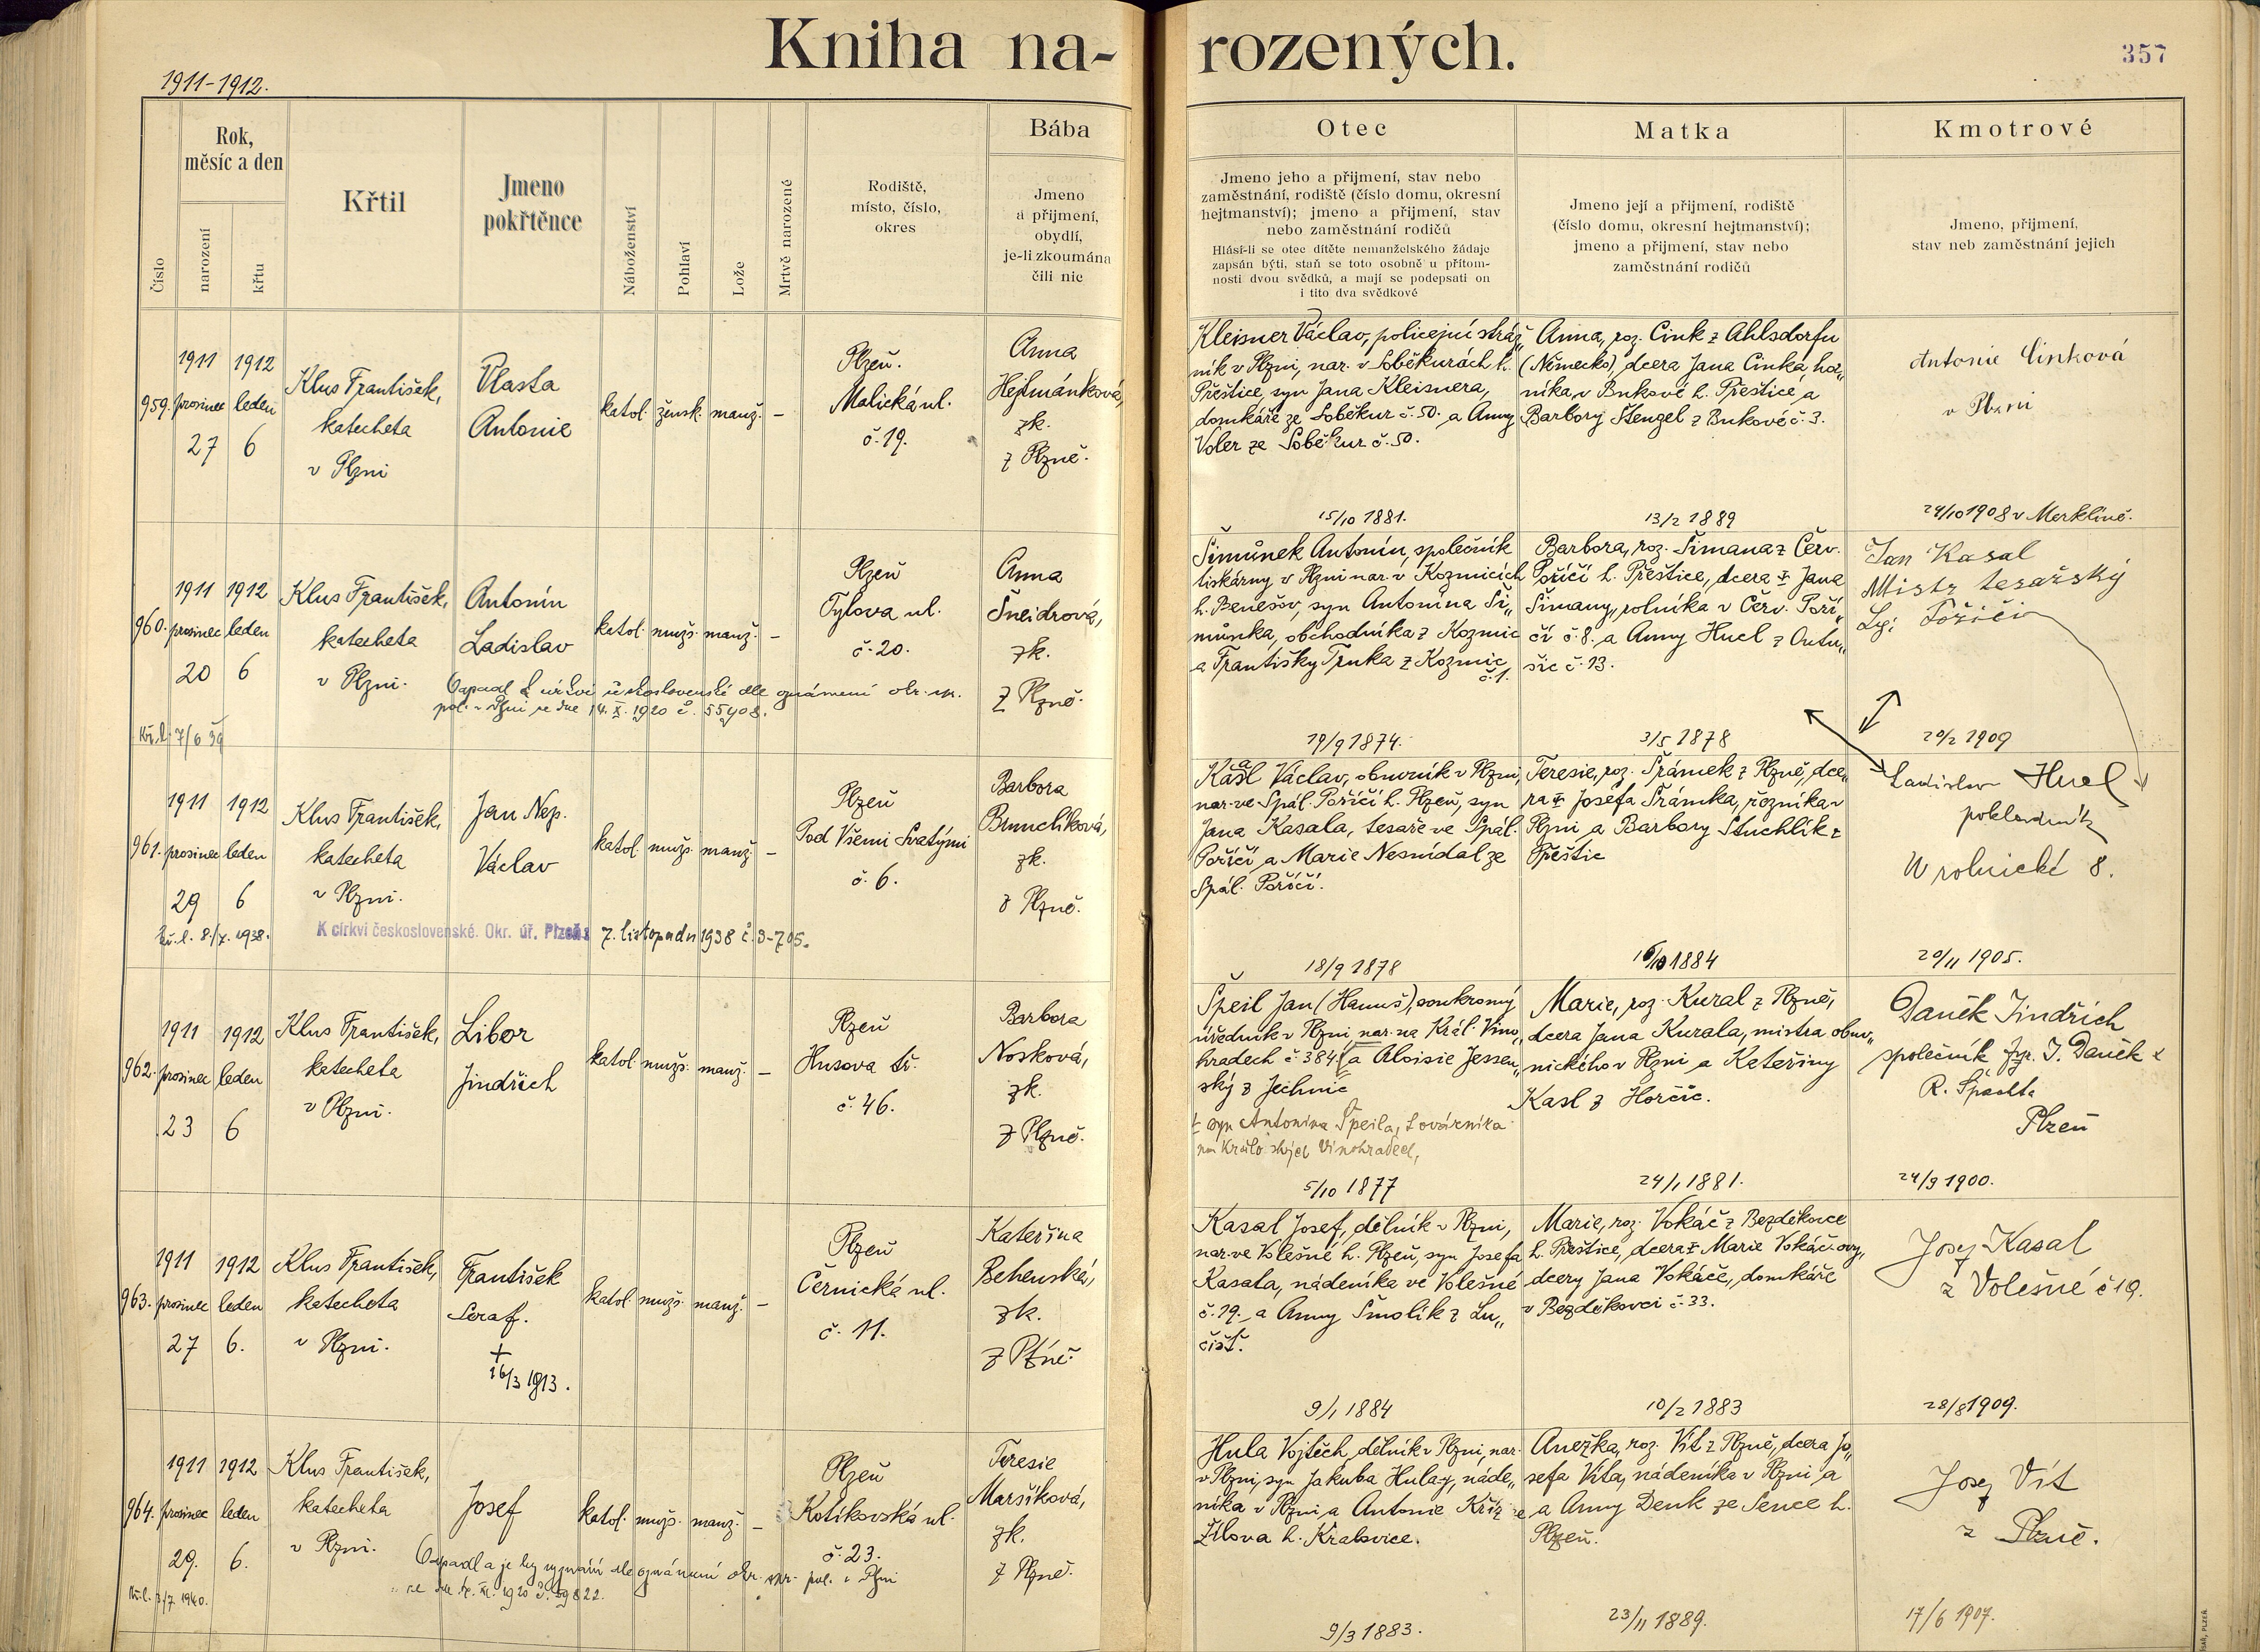 Kniha na-
rozených.
357
1911-1912.
Číslo
Rok,
měsíc a den
narození
křtu
Křtil
Jmeno
pokřtěnce
Náboženství
Pohlaví
Lože
Mrtvě narozené
Rodiště,
místo, číslo,
okres
Bába
Jmeno
a přijmení,
obydlí,
je-li zkoumána
čili nic
Otec
Jmeno jeho a přijmení, stav nebo
zaměstnání, rodiště (číslo domu, okresní
hejtmanství); jmeno a přijmení, stav
nebo zaměstnání rodičů
Hlásí-li se otec dítěte nemanželského žádaje
zapsán býti, staň se toto osobně u přítom-
nosti dvou svědků, a mají se podepsati on
i tito dva svědkové
Matka
Jmeno její a přijmení, rodiště
(číslo domu, okresní hejtmanství);
jmeno a přijmení, stav nebo
zaměstnání rodičů
Kmotrové
Jmeno, přijmení,
stav neb zaměstnání jejich
959.
1911
prosinec
27
1912
leden
6
Klus František,
katecheta
v Plzni
Vlasta
Antonie
katol.
žensk.
manž.
–
Plzeň.
Malická ul.
č. 19.
Anna
Hejtmánková,
zk.
z Plzně.
Kleisner Václav, policejní stráž„
ník v Plzni, nar. v Soběkurách h.
Přeštice, syn Jana Kleisnera,
domkáře ze Soběkur č. 50. a Anny
Voler ze Soběkur č. 50.
15/10 1881.
Anna, roz. Cink z Ahlsdorfu
(Německo), dcera Jana Cinka, hor„
níka, v Bukové h. Přeštice, a
Barbory Stengel z Bukové č. 3.
13/2 1889
Antonie Cinková
v Plzni
24/10 1908 v Merklíně.
960.
1911
prosinec
20
1912
leden
6
Klus František,
katecheta
v Plzni.
Antonín
Ladislav
katol.
mužs.
manž.
–
Plzeň
Tylova ul.
č. 20.
Anna
Šneidrová,
zk.
z Plzně.
Odpadl k církvi československé dle oznámení okr. sp.
pol. v Plzni ze dne 14. X. 1920 č. 55408.
Kř. l. 7/6 39
Šimůnek Antonín, společník
tiskárny v Plzni nar. v Kozmicích
h. Benešov, syn Antonína Ši„
můnka, obchodníka z Kozmic
a Františky Trnka z Kozmic
č. 1.
19/9 1874.
Barbora, roz. Šimana z Červ.
Poříčí h. Přeštice, dcera Jana
Šimany, rolníka v Červ. Poří„
čí č. 8. a Anny Hucl z Ontu„
šic č. 13.
3/5 1878
Jan Kasal
Mistr tesařský
Poříčí
20/2 1909
961.
1911
prosinec
29
1912
leden
6
Klus František,
katecheta
v Plzni.
Jan Nep.
Václav
katol.
mužs.
manž.
–
Plzeň
Pod Všemi Svatými
č. 6.
Barbora
Brunclíková,
zk.
z Plzně.
kř. l. 8./7. 1938.
K církvi československé. Okr. úř. Plzeň
7. listopadu 1938 č. 3-705.
Kasal Václav, obuvník v Plzni,
nar. ve Spál. Poříčí h. Plzeň, syn
Jana Kasala, tesaře ve Spál.
Poříčí, a Marie Nesnídal ze
Spál. Poříčí.
18/9 1878
Teresie, roz. Šrámek z Plzně, dce„
ra Josefa Šrámka, řezníka v
Plzni a Barbory Stuchlík z
Přeštic
1884
Ladislav Hucl
pokladník
U rolnické 8.
20/11 1905.
962.
1911
prosinec
23
1912
leden
6
Klus František,
katecheta
v Plzni.
Libor
Jindřich
katol.
mužs.
manž.
–
Plzeň
Husova tř.
č. 46.
Barbora
Nosková,
zk.
z Plzně.
Špeil Jan (Hanuš), soukromý
úředník v Plzni, nar. na Král. Vino„
hradech č. 384 a Aloisie Jessen„
ský z Jechnic
syn Antonína Špeila, továrníka
na Královských Vinohradech,
5/10 1877
Marie, roz. Kural z Plzně,
dcera Jana Kurala, mistra obuv„
nického v Plzni a Kateřiny
Kasl z Horčic.
24/1 1881.
Daněk Jindřich
společník fy. J. Daněk &
R. Špachta
Plzeň
24/9 1900.
963.
1911
prosinec
27
1912
leden
6.
Klus František,
katecheta
v Plzni.
František
Seraf.
+
16/3 1913.
katol.
mužs.
manž.
–
Plzeň
Černická ul.
č. 11.
Kateřina
Behenská,
zk.
z Plzně.
Kasal Josef, dělník v Plzni,
nar. ve Volešné h. Plzeň, syn Josefa
Kasala, nádeníka ve Volešné
č. 19. a Anny Smolík z Lu„
čišť.
9/1 1884
Marie, roz. Vokáč z Bezděkovce
h. Přeštice, dcera Marie Vokáčovy,
dcery Jana Vokáče, domkáře
v Bezděkovci č. 33.
10/2 1883
Josef Kasal
z Volešné č 19.
28/8 1909.
964.
1911
prosinec
29.
1912
leden
6.
Klus František,
katecheta
v Plzni.
Josef
katol.
mužs.
manž.
–
Plzeň
Kotíkovská ul.
č. 23.
Teresie
Maršíková,
zk.
z Plzně.
Odpadl a je bez vyznání dle oznámení okr. spr. pol. v Plzni
ze dne 1920 č. 59822.
Kř. l. 3/7 1940.
Hula Vojtěch, dělník v Plzni, nar.
v Plzni, syn Jakuba Huly, náde„
níka v Plzni a Antonie Kříž ze
Žilova h. Kralovice.
9/3 1883.
Anežka, roz. Vít z Plzně, dcera Jo„
sefa Víta, nádeníka v Plzni a
a Anny Denk ze Sence h.
Plzeň.
23/11 1889.
Josef Vít
z Plzně.
17/6 1907.